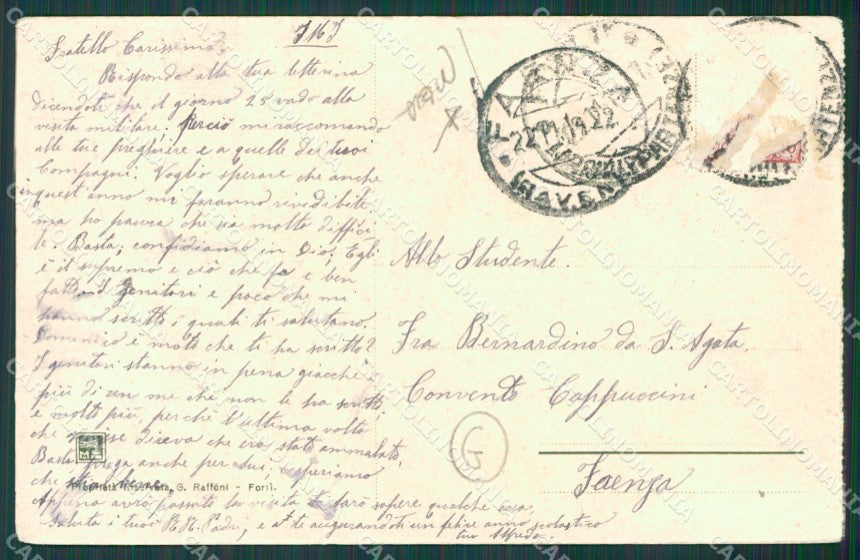 Fratello Carissimo,
Rispondo alla tua letterina
dicendoti che il giorno 25 vado alla
visita militare. Perciò mi raccomando
alle tue preghiere e a quelle dei tuoi
Compagni. Voglio sperare che anche
quest'anno mi faranno rivedibile
ma ho paura che sia molto diffici
le. Basta; confidiamo in Dio; Egli
è il supremo e ciò che fa è ben
fatto. I Genitori è poco che mi
hanno scritto i quali ti salutano.
Domenico è molto che ti ha scritto?
I genitori stanno in pena giacchè è
più di un me che non le ha scritto
e molto più perchè l'ultima volta
che scrisse diceva che era stato ammalato,
Basta prega anche per lui; e speriamo
che stia bene.
Appena avrò passato la visita ti farò sapere qualche cosa.
Saluta i tuoi R.R. Padri, e augurandoti un felice anno scolastico
tuo Alfredo.
Proprietà G. Raffoni - Forlì.
FAENZA
22.11.19.22
(RAVENNA)
Allo Studente.
Fra Bernardino da S. Agata
Convento Cappuccini
Faenza
G
CARTOLINOMANIA